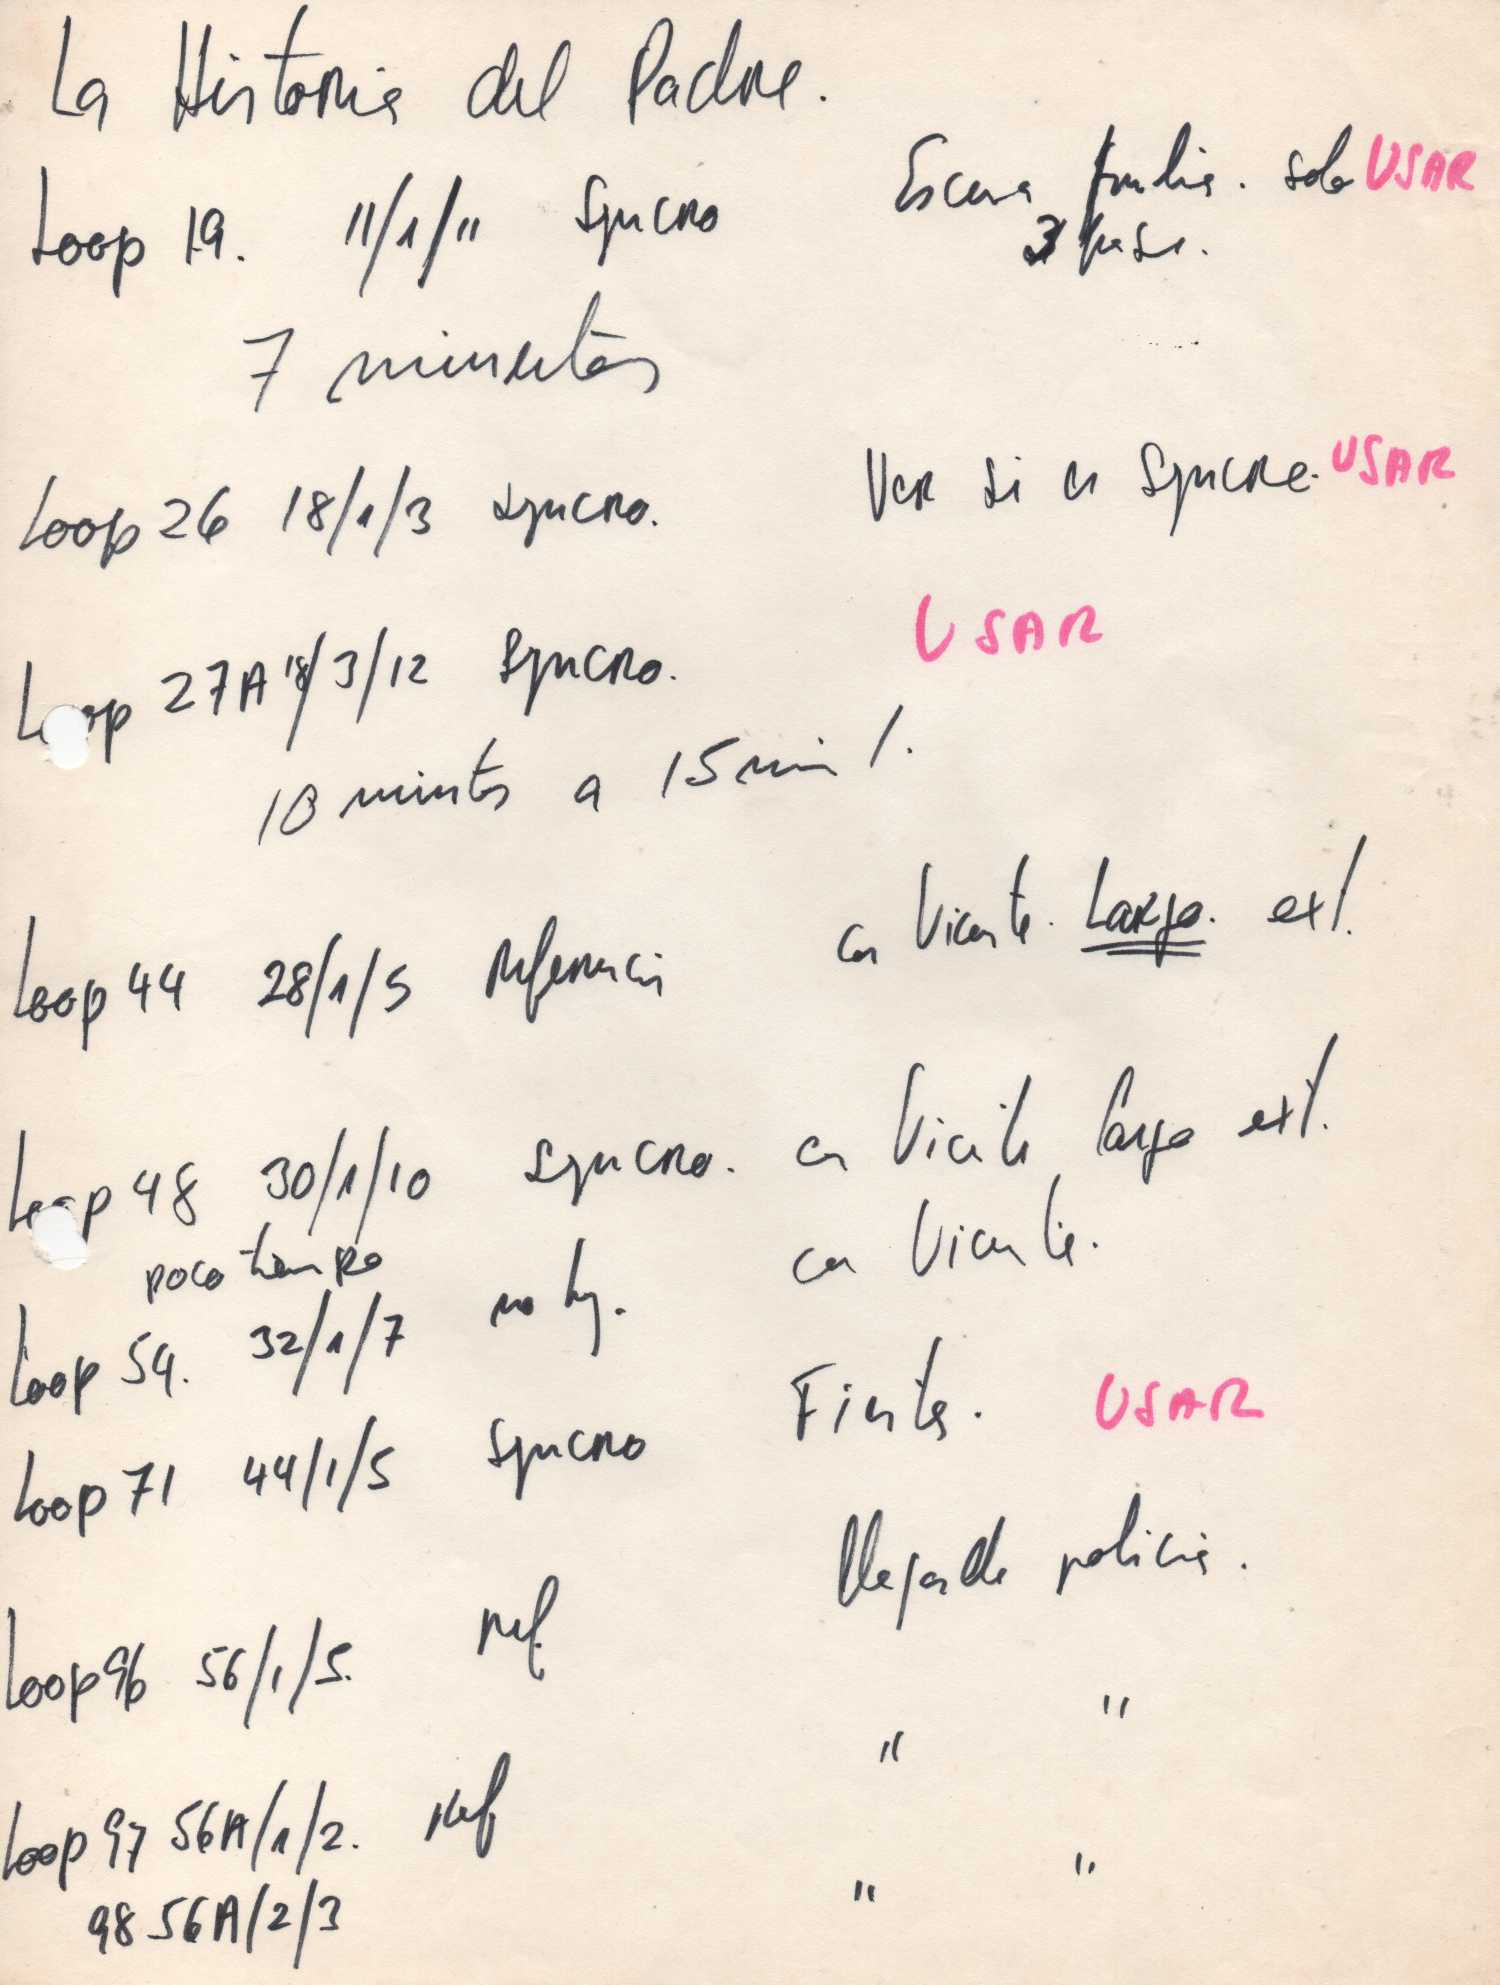 La Historia del Padre.
Loop 19. 11/1/11 Syncro Escena familia. solo USAR
3 frase.
7 minutos
Loop 26 18/1/3 syncro. Ver si es Syncro. USAR
Loop 27A 18/3/12 Syncro. USAR
10 minutos a 15 min/.
Loop 44 28/1/5 Referencia con Vicente. Largo. ext.
Loop 48 30/1/10 Syncro. con Vicente largo ext.
poco tiempo
Loop 54. 32/1/7 no hay. con Vicente.
Loop 71 44/1/5 Syncro Fiesta. USAR
Loop 96 56/1/5. Ref. Llegada de policia.
Loop 97 56A/1/2. Ref " "
98 56A/2/3 " "